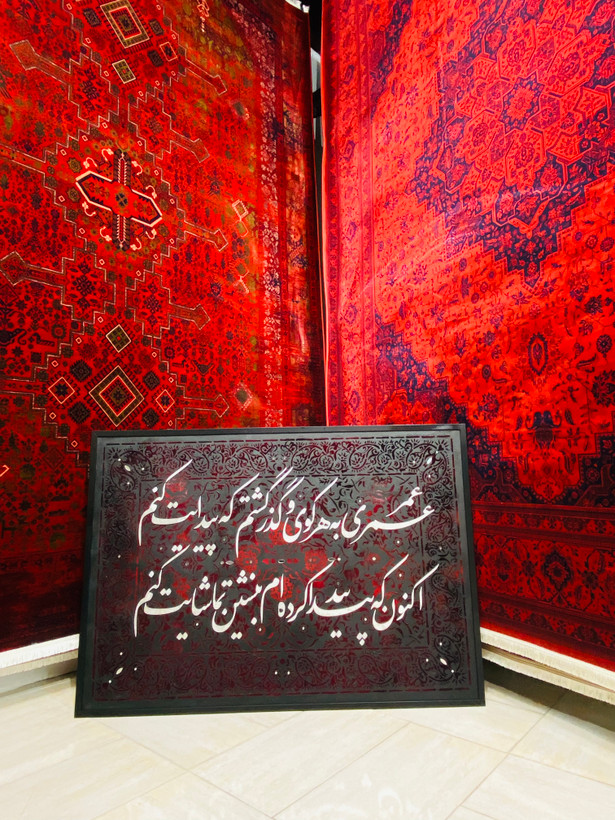 عمری به هر کوی و گذر گشتم که پیدایت کنم
اکنون که پیدا کرده ام بنشین تماشایت کنم